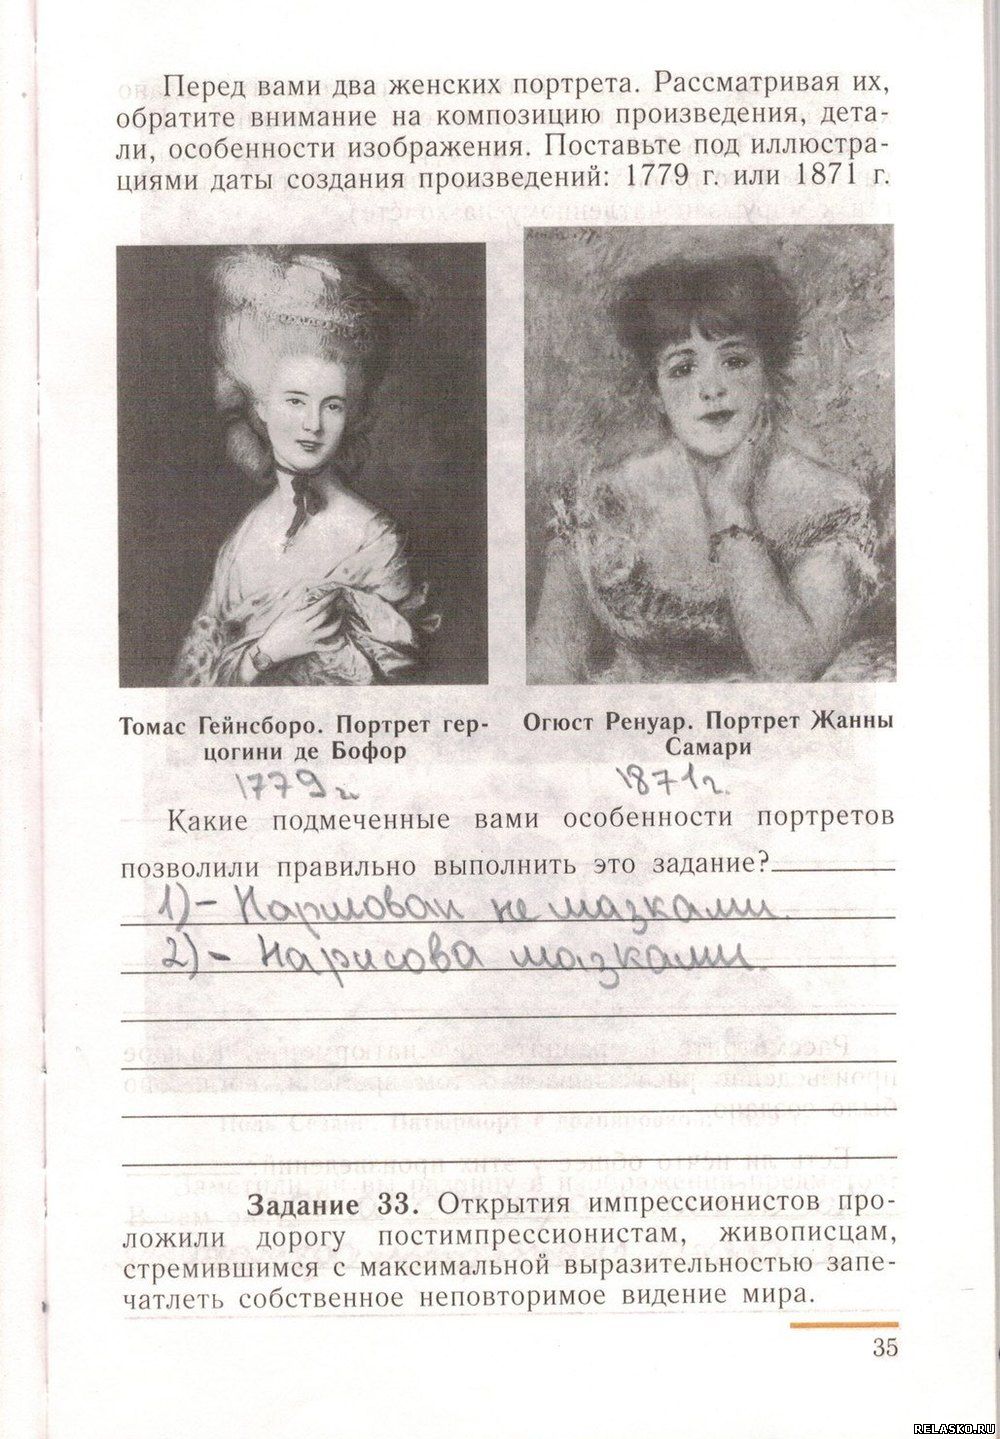 Перед вами два женских портрета. Рассматривая их,
обратите внимание на композицию произведения, дета-
ли, особенности изображения. Поставьте под иллюстра-
циями даты создания произведений: 1779 г. или 1871 г.
Томас Гейнсборо. Портрет гер-
цогини де Бофор
1779 г.
Огюст Ренуар. Портрет Жанны
Самари
1871 г.
Какие подмеченные вами особенности портретов
позволили правильно выполнить это задание?
1) - Нарисован не мазками.
2) - Нарисова мазками.
Задание 33. Открытия импрессионистов про-
ложили дорогу постимпрессионистам, живописцам,
стремившимся с максимальной выразительностью запе-
чатлеть собственное неповторимое видение мира.
35
RELASKO.RU